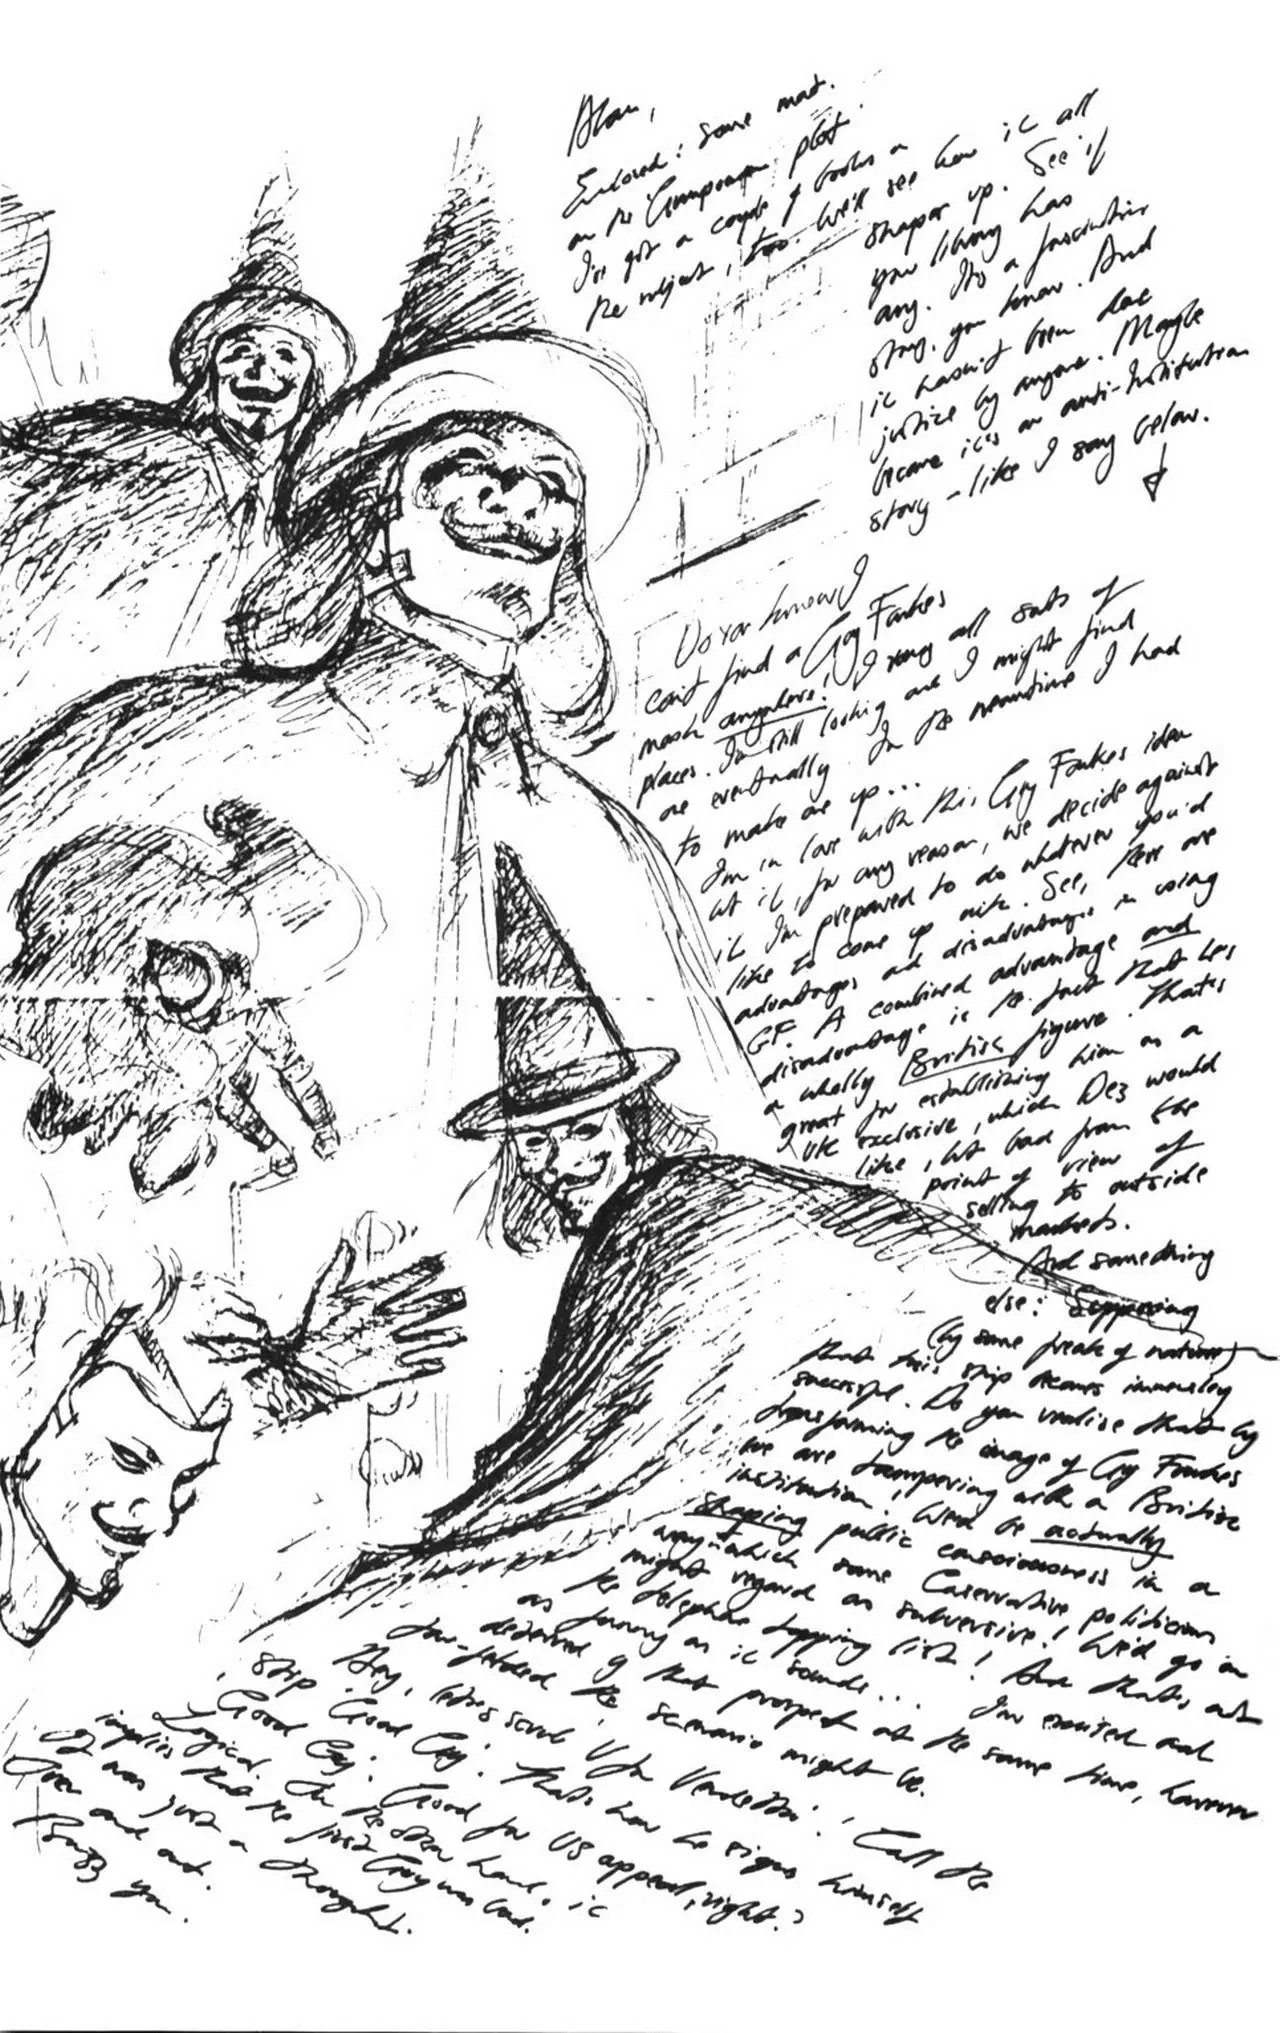 Alan,
Enclosed: some mat.
on the Gunpowder plot.
I've got a couple of books on
the subject, too. We'll see how it all
shapes up. See if
your library has
any. It's a fascinating
story, you know. And
it hasn't been done
justice by anyone. Maybe
because it's an anti-Institution
story - like I say below.
Do you know I
can't find a Guy Fawkes
mask anywhere! I rang all sorts of
places. I'm still looking and I might find
one eventually. In the meantime I had
to make one up...
I'm in love with this Guy Fawkes idea
but if, for any reason, we decide against
it I'm prepared to do whatever you'd
like to come up with. See, there are
advantages and disadvantages in using
G.F. A combined advantage and
disadvantage is the fact that he's
a wholly British figure. That's
great for establishing him as a
UK exclusive, which Dez would
like, but bad from the
point of view of
selling to outside
markets.
And something
else: Supposing
(by some freak of nature)
that this strip becomes immensely
successful. Do you realise that by
transforming the image of Guy Fawkes
we are tampering with a British
institution! We'd be actually
shaping public consciousness in a
way which some Conservative politicians
might regard as subversive! We'd go on
the telephone tapping list! And that's not
as funny as it sounds... I'm excited and
deterred by that prospect at the same time, however
far-fetched the scenario might be.
Hey, let's scrub 'V for Vendetta'! Call the
strip 'Good Guy'. That's how he signs himself
'Good Guy'. Good for US appeal, right?
Logical. On the other hand, it
implies that the first Guy was bad.
It was just a thought.
Over and out.
Buzz you.